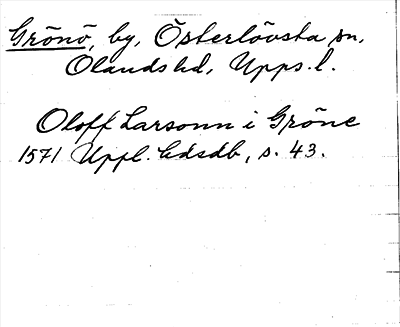 Grönö, by, Österlövsta sn,
Olands hd, Upps. l.
Oloff Larsonn i Gröne
1571 Uppl. hdsdb, s. 43.